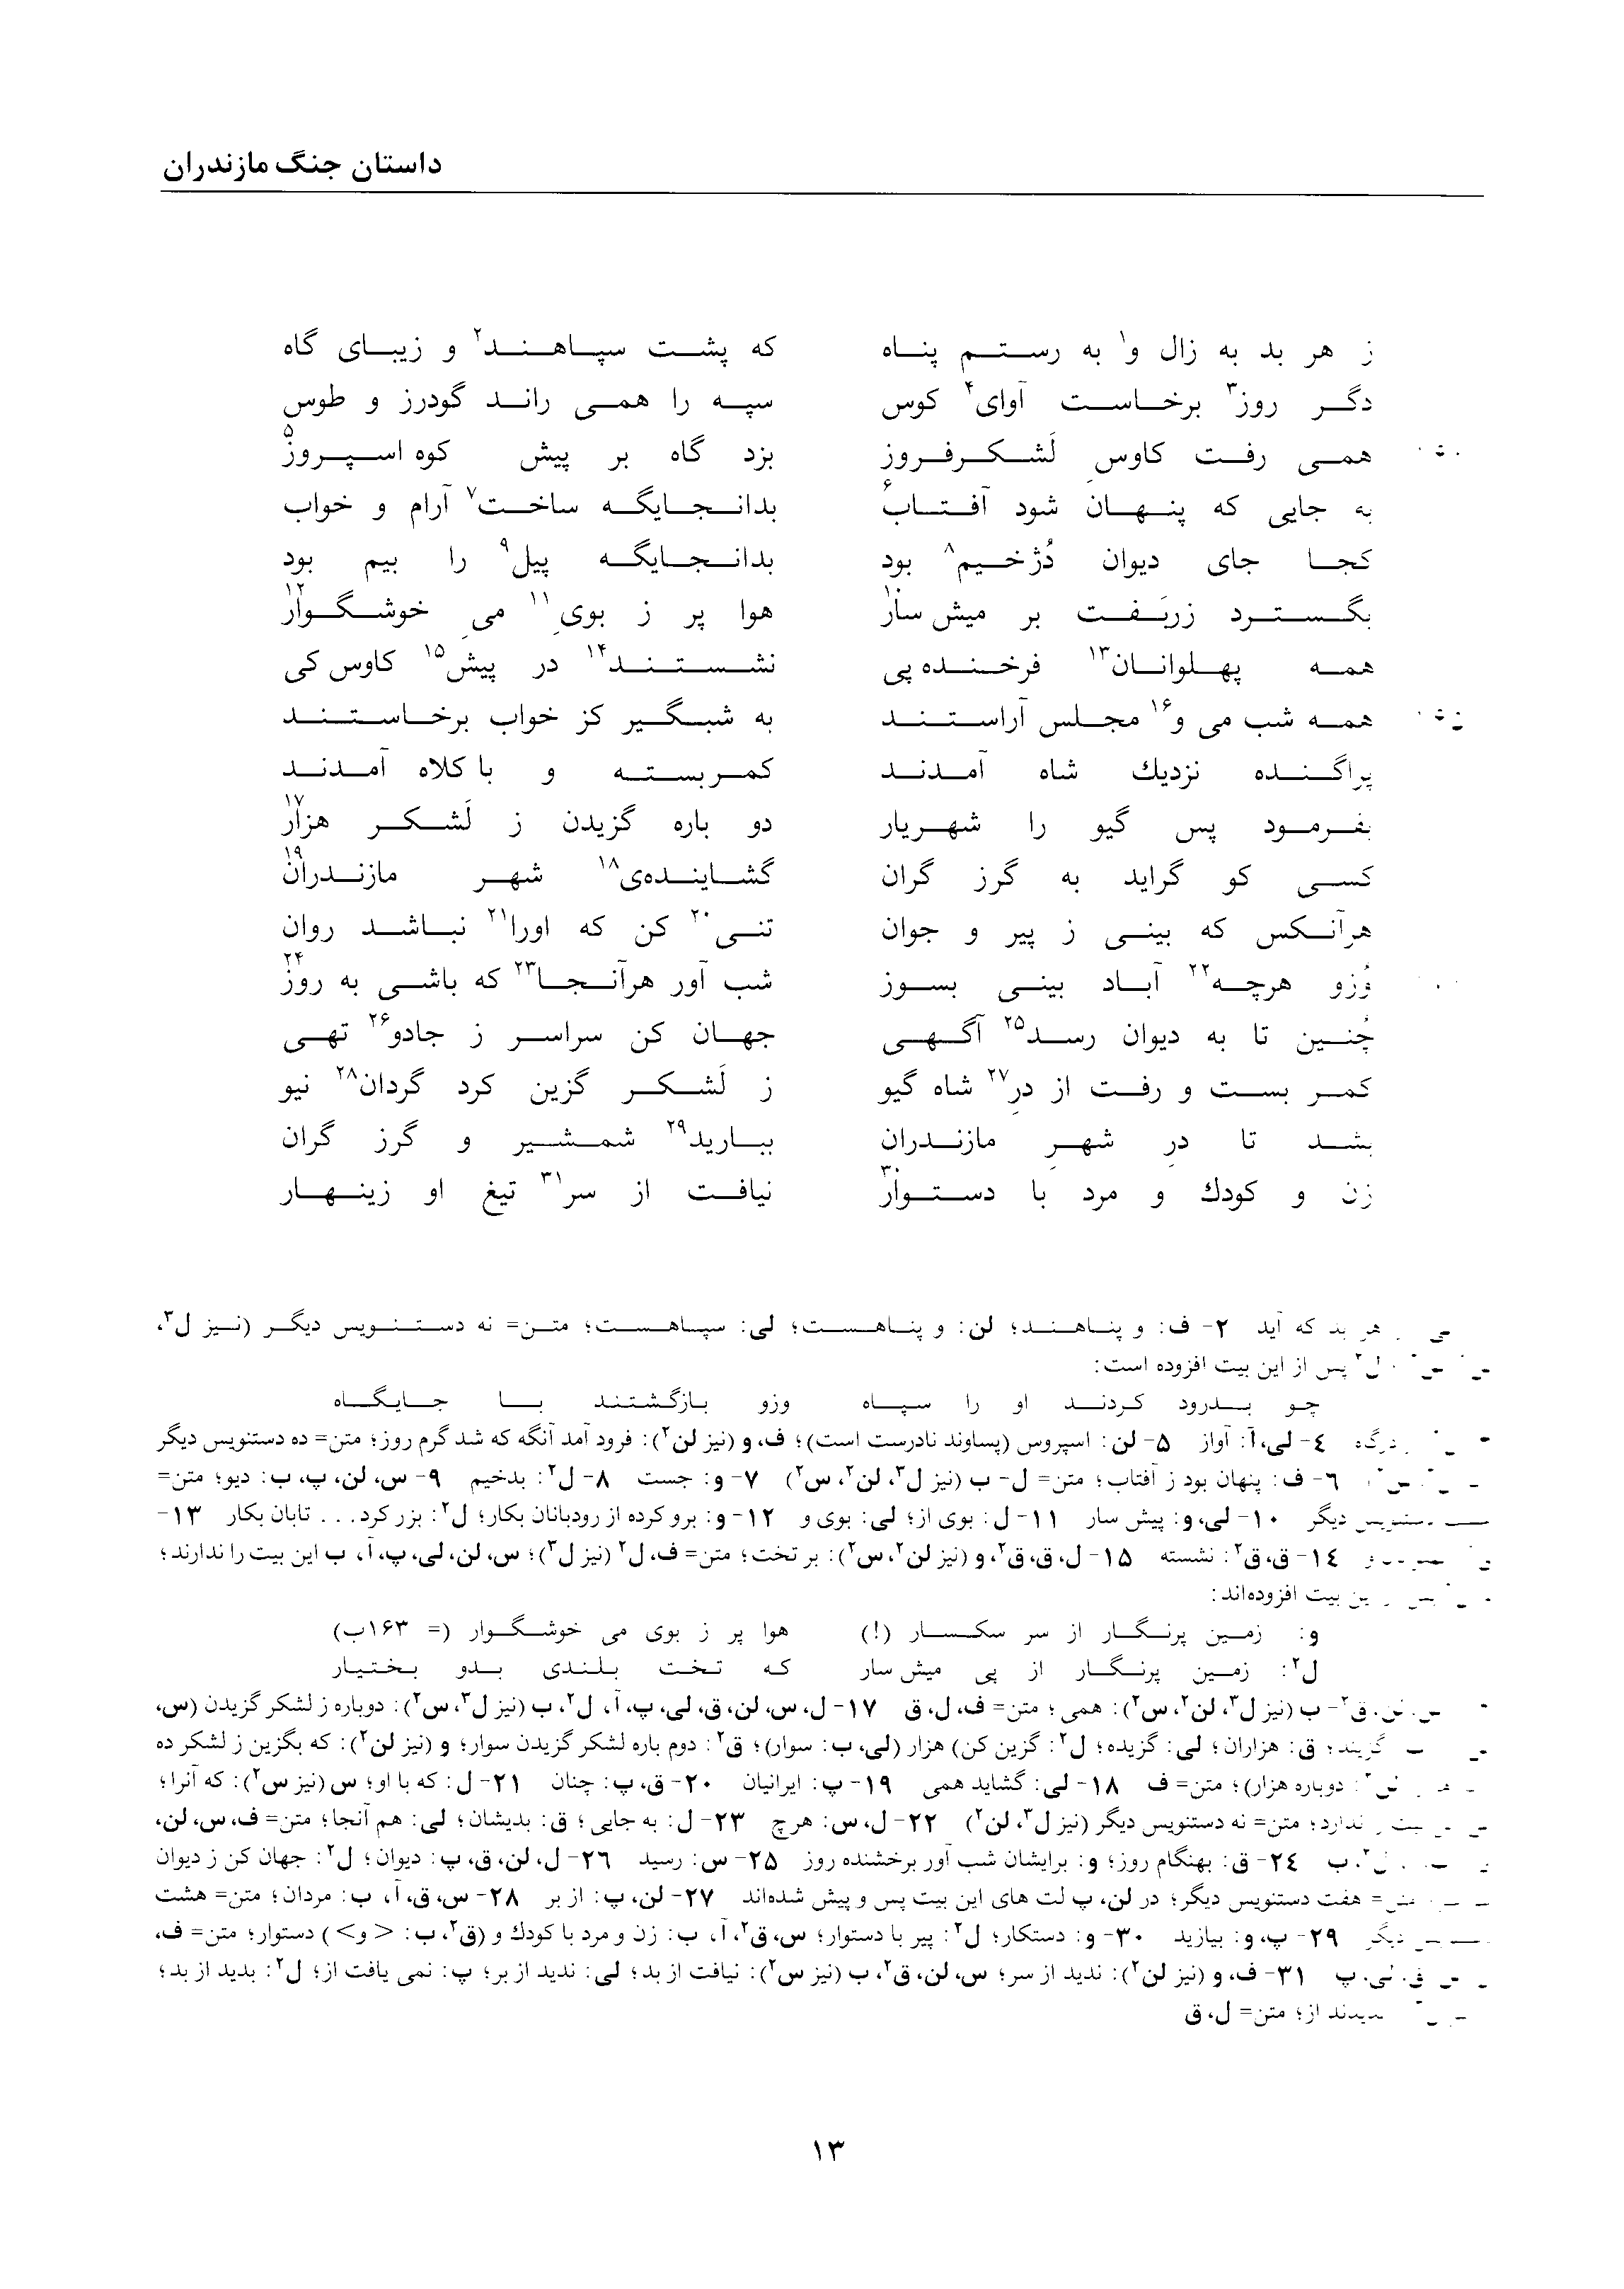 داستان جنگ مازندران
ز هر بد به زال و۱ به رستم پناه که پشت سپاهند۲ و زیبای گاه
دگر روز۳ برخاست آوای۴ کوس سپه را همی راند گودرز و طوس
همی رفت کاوسِ لَشکرفروز بزد گاه بر پیش کوه اسپروز۵
به جایی که پنهان شود آفتاب۶ بدانجایگه ساخت۷ آرام و خواب
کجا جای دیوان دُژخیم۸ بود بدانجایگه پیل۹ را بیم بود
بگسترد زربَفت بر میش سار۱۰ هوا پر ز بویِ۱۱ میِ خوشگوار۱۲
همه پهلوانان۱۳ فرخنده پی نشستند۱۴ در پیش۱۵ کاوس کی
همه شب می و۱۶ مجلس آراستند به شبگیر کز خواب برخاستند
پراگنده نزدیك شاه آمدند کمربسته و با کلاه آمدند
بفرمود پس گیو را شهریار دو باره گزیدن ز لَشکر هزار۱۷
کسی کو گراید به گرز گران گشاینده‌ی۱۸ شهر مازندران۱۹
هرآنکس که بینی ز پیر و جوان تنی۲۰ کن که اورا۲۱ نباشد روان
وُزو هرچه۲۲ آباد بینی بسوز شب آور هرآنجا۲۳ که باشی به روز۲۴
چُنین تا به دیوان رسد۲۵ آگهی جهان کن سراسر ز جادو۲۶ تهی
کمر بست و رفت از درِ۲۷ شاه گیو ز لَشکر گزین کرد گردان۲۸ نیو
بشد تا درِ شهرِ مازندران ببارید۲۹ شمشیر و گرز گران
زن و کودك و مرد با دستوار۳۰ نیافت از سر۳۱ تیغ او زینهار
هر بد که آید ۲- ف: و پناهند؛ لن: و پناهست؛ لی: سپاهست؛ متن= نه دستنویس دیگر (نیز ل۳،
ل۲ پس از این بیت افزوده است:
چو بدرود کردند او را سپاه وزو بازگشتند با جایگاه
۴- لی، آ: آواز ۵- لن: اسپروس (پساوند نادرست است)؛ ف، و (نیز لن۲): فرود آمد آنگه که شد گرم روز؛ متن= ده دستنویس دیگر
۶- ف: پنهان بود ز آفتاب؛ متن= ل- ب (نیز ل۳، لن۲، س۲) ۷- و: جست ۸- ل۲: بدخیم ۹- س، لن، پ، ب: دیو؛ متن=
دیگر ۱۰- لی، و: پیش سار ۱۱- ل: بوی از؛ لی: بوی و ۱۲- و: برو کرده از رودبانان بکار؛ ل۲: بزر کرد... تابان بکار ۱۳-
۱۴- ق، ق۲: نشسته ۱۵- ل، ق، ق۲، و (نیز لن۲، س۲): بر تخت؛ متن= ف، ل۲ (نیز ل۳)؛ س، لن، لی، پ، آ، ب این بیت را ندارند؛
بیت افزوده‌اند:
و: زمین پرنگار از سر سکسار (!) هوا پر ز بوی می خوشگوار (= ۱۶۳ب)
ل۲: زمین پرنگار از پی میش سار که تخت بلندی بدو بختیار
ق۲- ب (نیز ل۳، لن۲، س۲): همی؛ متن= ف، ل، ق ۱۷- ل، س، لن، ق، لی، پ، آ، ل۲، ب (نیز ل۳، س۲): دوباره ز لشکر گزیدن (س،
ق: هزاران؛ لی: گزیده؛ ل۲: گزین کن) هزار (لی، ب: سوار)؛ ق۲: دوم باره لشکر گزیدن سوار؛ و (نیز لن۲): که بگزین ز لشکر ده
دوباره هزار)؛ متن= ف ۱۸- لی: گشاید همی ۱۹- پ: ایرانیان ۲۰- ق، پ: چنان ۲۱- ل: که با او؛ س (نیز س۲): که آنرا؛
ندارد؛ متن= نه دستنویس دیگر (نیز ل۳، لن۲) ۲۲- ل، س: هرچ ۲۳- ل: به جایی؛ ق: بدیشان؛ لی: هم آنجا؛ متن= ف، س، لن،
ب ۲۴- ق: بهنگام روز؛ و: برایشان شب آور برخشنده روز ۲۵- س: رسید ۲۶- ل، لن، ق، پ: دیوان؛ ل۲: جهان کن ز دیوان
= هفت دستنویس دیگر؛ در لن، پ لت های این بیت پس و پیش شده‌اند ۲۷- لن، پ: از بر ۲۸- س، ق، آ، ب: مردان؛ متن= هشت
۲۹- پ، و: بیازید ۳۰- و: دستکار؛ ل۲: پیر با دستوار؛ س، ق۲، آ، ب: زن و مرد با کودك و (ق۲، ب: <و>) دستوار؛ متن= ف،
لی، پ ۳۱- ف، و (نیز لن۲): ندید از سر؛ س، لن، ق۲، ب (نیز س۲): نیافت از بد؛ لی: ندید از بر؛ پ: نمی یافت از؛ ل۲: بدید از بد؛
از؛ متن= ل، ق
۱۳